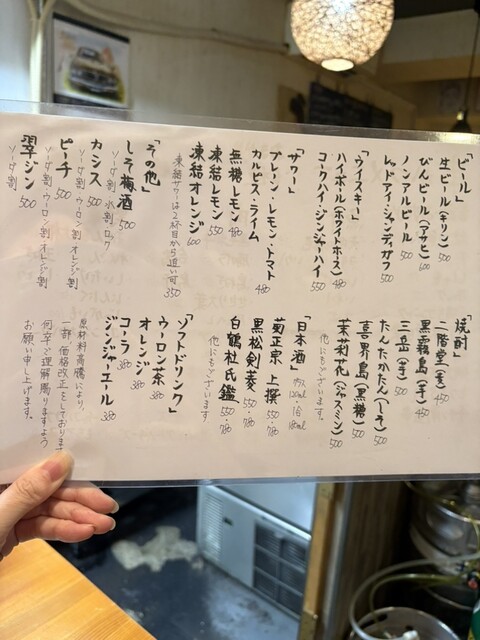 「ビール」
生ビール(キリン) 500
びんビール(アサヒ) 600
ノンアルビール 500
レッドアイ・シャンディガフ 500
「ウイスキー」
ハイボール(ホワイトホース) 480
コークハイ・ジンジャーハイ 550
「サワー」
プレーン・レモン・トマト
カルピス・ライム 480
無糖レモン 480
凍結レモン 550
凍結オレンジ 600
凍結サワーは2杯目から追い可 350
「その他」
しそ梅酒 500
ソーダ割 水割 ロック
カシス 500
ソーダ割 ウーロン割 オレンジ割
ピーチ 500
ソーダ割 ウーロン割 オレンジ割
翠ジン 500
ソーダ割
「焼酎」
二階堂(麦) 450
黒霧島(芋) 450
三岳(芋) 500
たんたかたん(しそ) 500
喜界島(黒糖) 500
茉莉花(ジャスミン) 500
他にもございます。
「日本酒」 グラス120ml・1合180ml
菊正宗 上撰 550・780
黒松剣菱 550・780
白鶴杜氏鑑 550・780
他にもございます
「ソフトドリンク」
ウーロン茶 380
オレンジ 380
コーラ 380
ジンジャーエール 380
原材料高騰により
一部価格改正をしております
何卒ご理解賜りますよう
お願い申し上げます。